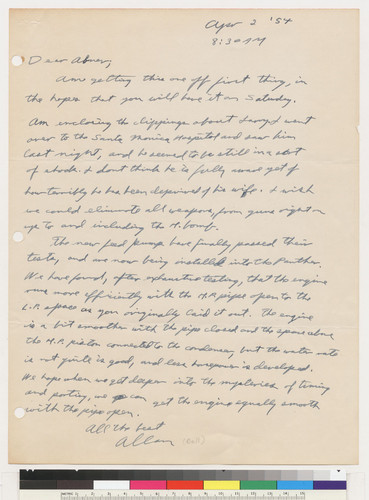 Apr 2 '54
8:30 AM
Dear Abner,
Am getting this one off first thing, in
the hopes that you will have it on Saturday.
Am enclosing the clippings about I went
over to the Santa Monica Hospital and saw him
last night, and he seemed to be still in a sort
of shock. I dont think he is fully aware yet of
how terribly he has been deprived of his wife. I wish
we could eliminate all weapons, from guns right on
up to and including the H. bomb.
The new feed pumps have finally passed their
tests, and are now being installed into the Panther.
We have found, after exhaustive testing, that the engine
runs more efficiently with the H.P. pipes open to the
L.P. as you originally laid it out. The engine
is a bit smoother with the pipe closed and the space above
the H.P. piston connected to the condenser, but the water rate
is not quite as good, and less horsepower is developed.
We hope when we get deeper into the mysteries of timing
and porting, we can get the engine equally smooth
with the pipe open.
All the best
Allan